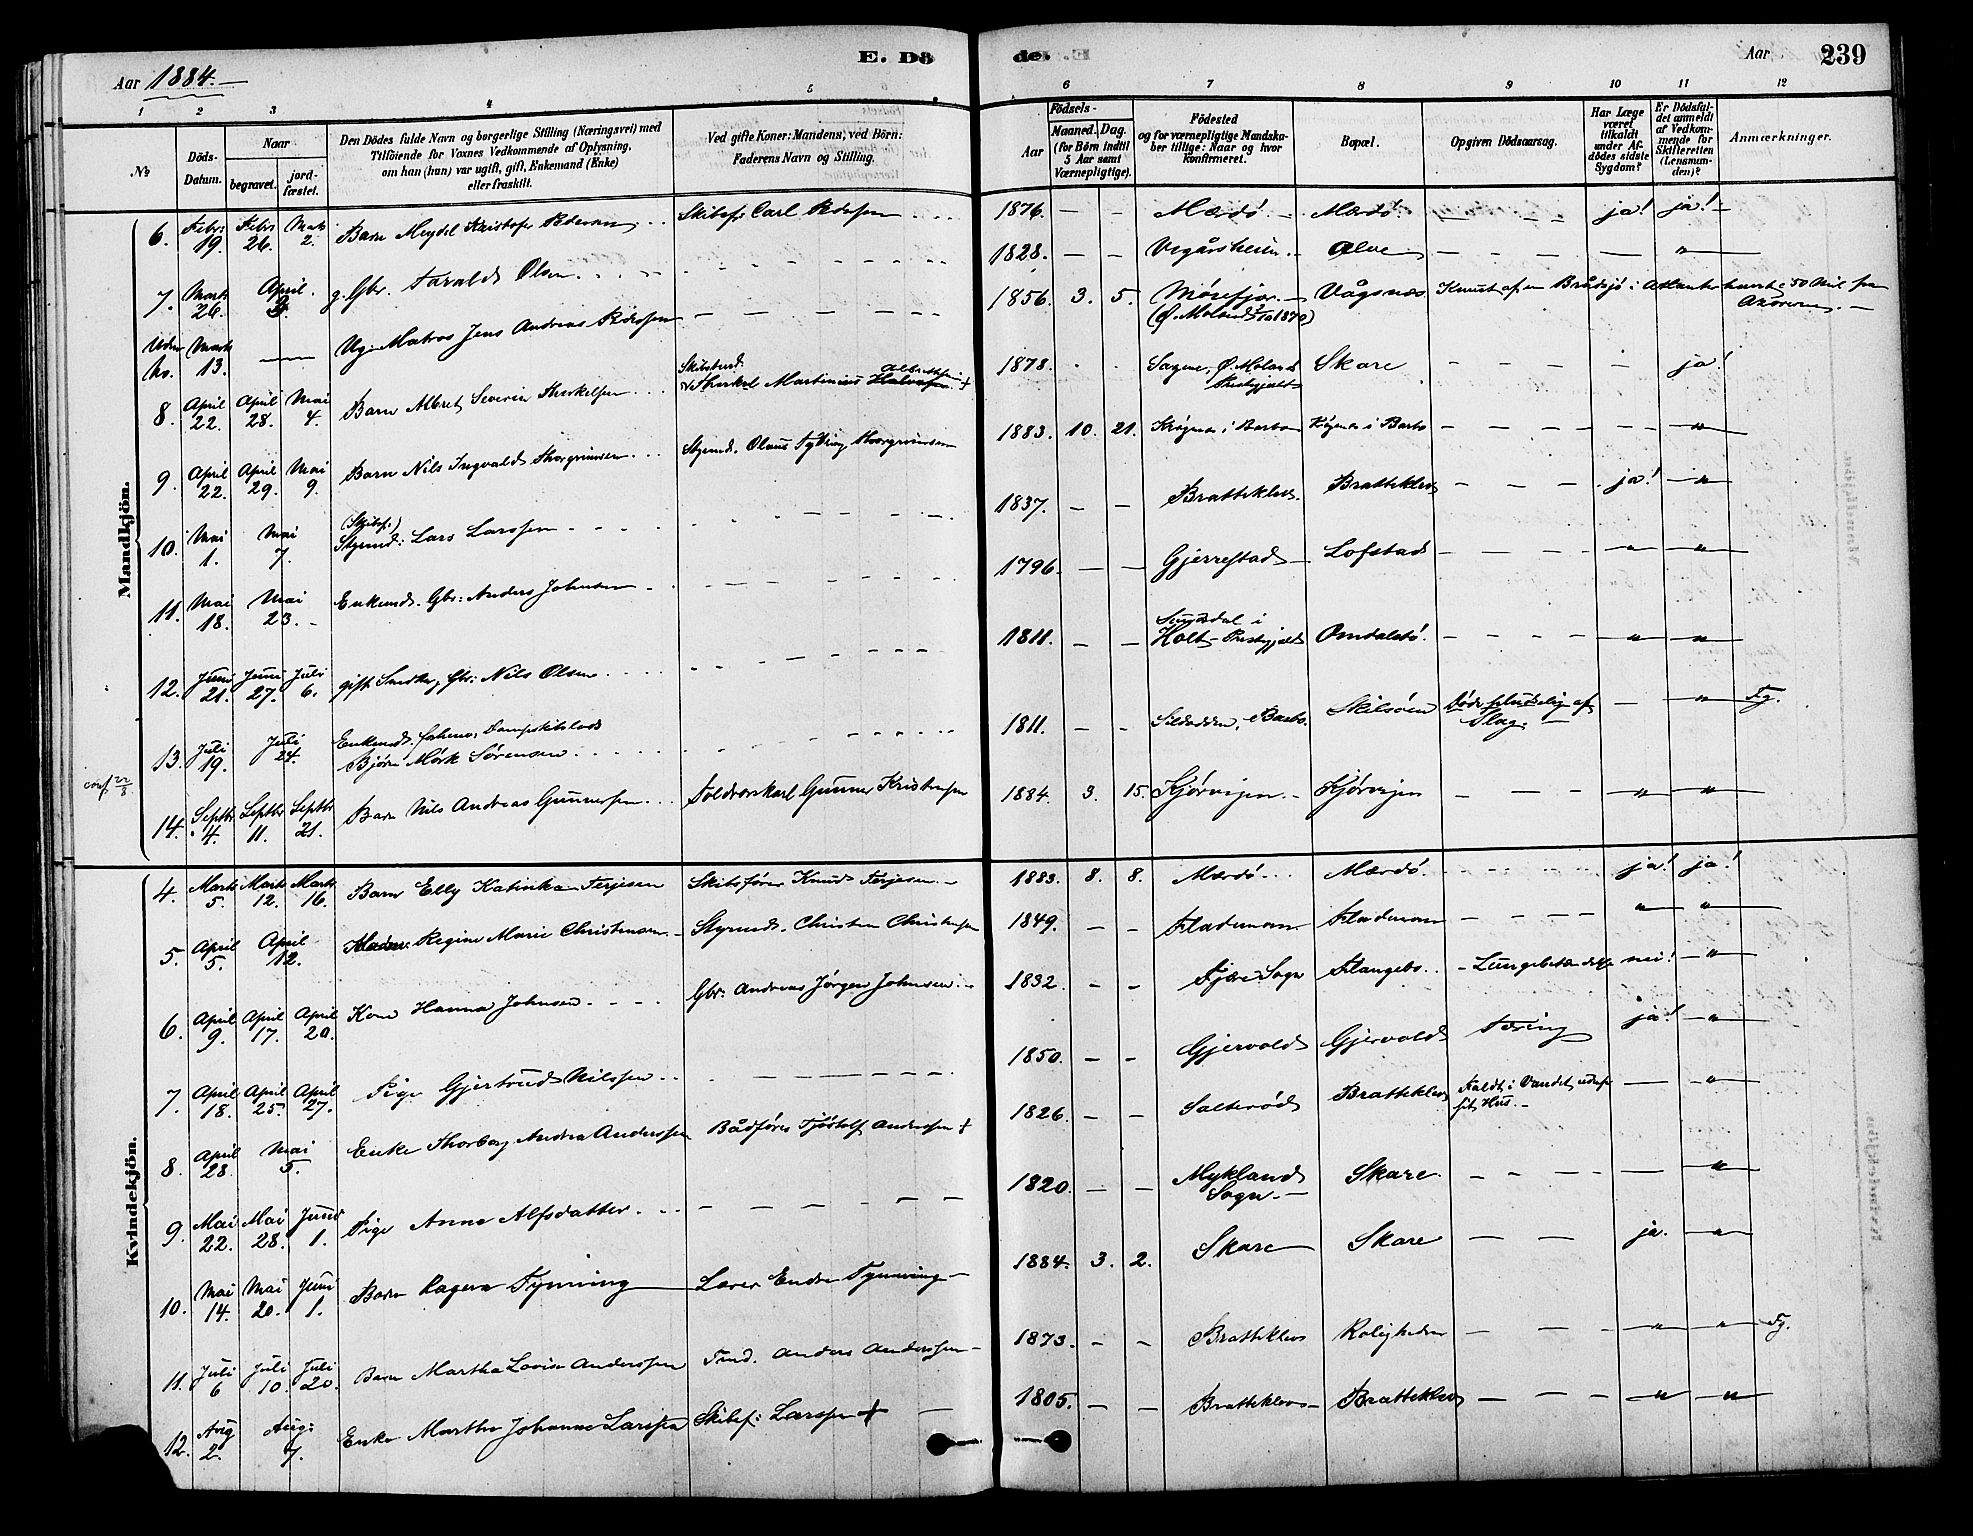 Aar 1884.
E. Dö
de.
Aar 239
1 2 3 4 5 6 7 8 9 10 11 12
No
Döds-Datum.
Naar
begravet.
jord-fæstet.
Den Dödes fulde Navn og borgerlige Stilling (Næringsvei) med
Tilföiende for Voxnes Vedkommende af Oplysning,
om han (hun) var ugift, gift, Enkemand (Enke)
eller fraskilt.
Ved gifte Koner: Mandens, ved Börn:
Faderens Navn og Stilling.
Födsels-
Aar
Maaned. Dag.
(for Börn indtil
5 Aar samt
Værnepligtige).
Födested
og for værnepligtige Mandska-
ber tillige: Naar og hvor
konfirmeret.
Bopæl.
Opgiven Dödsaarsag.
Har Læge
været
tilkaldt
under Af-
dödes sidste
Sygdom?
Er Dödsfal-
det anmeldt
af Vedkom-
mende for
Skifteretten
(Lensman-
den)?
Anmærkninger.
Mandkjön.
6. Febr 19. Febr 26. Mart 2. Barn Meydel Kristofer Pedersen Skibsf. Carl Pedersen 1876. — — Mærdö. Mærdö. — ja! ja!
7. Marts 26. April g. Gbr. Taralds Olsen 1828. — — Vegårsheim. Alve — "
Uden No. Marts 13. — Ug. Matros Jens Andreas Pedersen — 1856. 3. 5. Mörefjær. (Ö. Moland 1870) Vågsnæs Knust af en Brådsjö i Atlanterhavet 50 Mil fra Azorerne.
8. April 22. April 28. Mai 4. Barn Albret Severin Therkelsen Thorkel Martinius 1878. Sagene, Ö. Molands Præstegjeld Skare — ja!
9. April 22. April 29. Mai 9. Barn Nils Ingvald Thorgrimsen Styrmd. Olaus Thorgrimsen 1883. 10. 21. Krögenes i Barbo Krögenes i Barbo — "
10. Mai 1. Mai 7. (Skibsf.) Styrmd: Lars Larssen 1837. — — Bratteklev. Bratteklev — ja! "
11. Mai 18. Mai 23. Enkemd. Gbr: Anders Johnsen 1796. — — Gjerrestad Lofstad — " "
12. Juni 21. Juni 27. Juli 6. gift Snedker, Gbr: Nils Olsen 1811. — — Sundsdal i Holt Præstegjeld Omdalstö. — " "
13. Juli 19. Juli 24. Enkemd. Dampskibslods Bjørn Mørk Sørensen 1811. — — Barbo. Skilsöen Döde pludselig af Slag. — " Fg.
14. Septbr 4. Septbr 11. Septbr 21. Barn Nils Andreas Gunnersen Toldoverkarl Gunner Kristensen 1884. 3. 15. Kjörvigen Kjörvigen — " "
Kvindekjön.
4. Marts 5. Marts 12. Marts 16. Barn Elly Katinka Terjesen Skibsförer Knud Terjesen 1883. 8. 8. Mærdö Mærdö. ja! ja!
5. April 5. April 12. Regine Marie Christensen Styrmd. Christen Christensen 1849. — — Flademoen Flademoen — " "
6. April 9. April 17. April 20. Kone Hanna Johnsen Gbr: Andreas Jörgen Johnsen 1832. — — Fjære Sogn Flangebo. Lungebetændelse nei! "
7. April 18. April 25. April 27. Pige Gjertrud Nilssen — 1850. — — Gjervold Gjervold Tæring ja! "
8. April 28. Mai 5. Enke Thorborg Andrea Anderssen Bådförer Tjöstolf Anderssen † 1826. — — Salteröd Bratteklev Faldt i Vandet udenf. sit Hus. — "
9. Mai 22. Mai 28. Juni 1. Pige Anne Alfsdatter — 1820. — — Myklands Sogn. Skare. — "
10. Mai 14. Mai 20. Juni 1. Barn Ragna Tynning Lærer Endre Tynning 1884. 3. 2. Skare Skare — ja. "
11. Juli 6 Juli 10. Juli 20. Barn Martha Lovise Anderssen Tmd. Anders Anderssen 1873. — — Bratteklev Roligheden — " " Fg.
12. Aug 2. Aug: 7. Enke Marthe Johanne Larssen Skibsf: Larssen † 1805. — — Bratteklev Bratteklev — " "